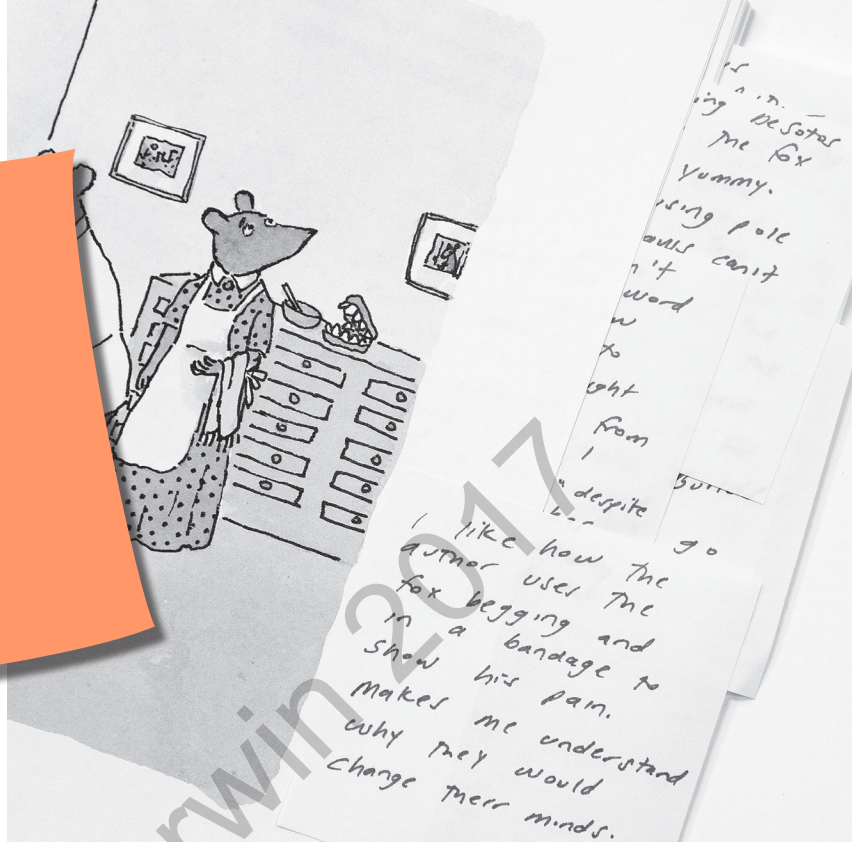 ing Desotos
The fox
yummy.
using pole
can't
n't
word
w
to
ght
from
I
"despite
go
I like how the
author uses the
fox begging and
in a bandage to
show his pain.
Makes me understand
why they would
change their minds.
rwin 2017